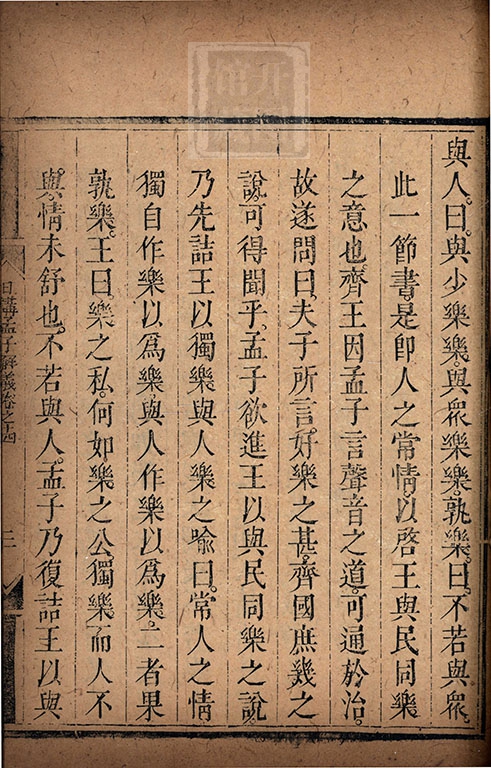 與人。曰。與少樂樂。與眾樂樂。孰樂。曰。不若與眾。
此一節書。是卽人之常情。以啓王與民同樂
之意也。齊王因孟子言聲音之道。可通於治。
故遂問曰。夫子所言。好樂之甚。齊國庶幾之
說。可得聞乎。孟子欲進王以與民同樂之說。
乃先詰王以獨樂與人樂之喩曰。常人之情
獨自作樂以爲樂。與人作樂以爲樂。二者果
孰樂。王曰。樂之私。何如樂之公。獨樂而人不
與。情未舒也。不若與人。孟子乃復詰王以與
日講孟子解義卷之十四
三